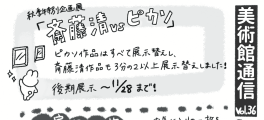 美術館通信 vol.36
秋季特別企画展
「斎藤清 vs ピカソ」
ピカソ作品はすべて展示替え、
斎藤清作品も3分の2以上展示替えしました!
後期展示 〜11/28まで!